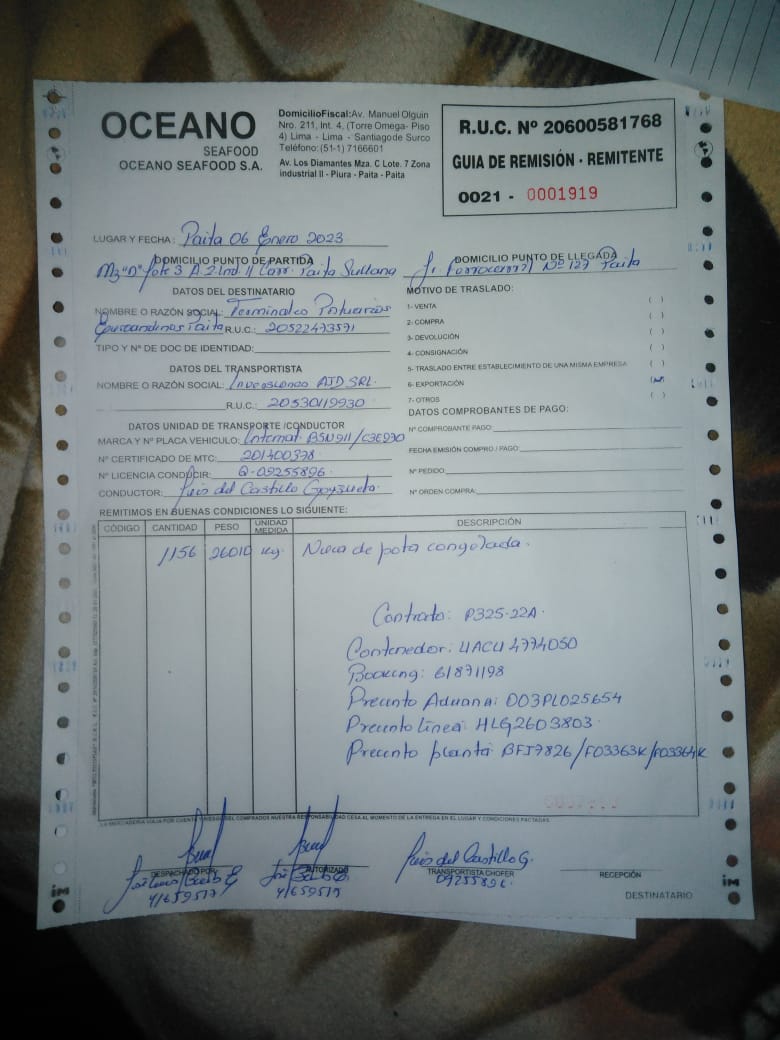 OCEANO
SEAFOOD
OCEANO SEAFOOD S.A.
DomicilioFiscal: Av. Manuel Olguin
Nro. 211, Int. 4, (Torre Omega- Piso
4) Lima - Lima - Santiago de Surco
Teléfono: (51-1) 7166601
Av. Los Diamantes Mza. C Lote. 7 Zona
industrial II - Piura - Paita - Paita
R.U.C. Nº 20600581768
GUIA DE REMISIÓN - REMITENTE
0021 - 0001919
LUGAR Y FECHA: Paita 06 Enero 2023
DOMICILIO PUNTO DE PARTIDA
Mz "D" lote 3 A. 2 Ind. II Carr. Paita Sullana
DOMICILIO PUNTO DE LLEGADA
Jr Ferrocarril Nº 127 Paita
DATOS DEL DESTINATARIO
NOMBRE O RAZÓN SOCIAL: Terminales Portuarios
Euroandinos Paita R.U.C.: 20522473571
TIPO Y Nº DE DOC DE IDENTIDAD:
DATOS DEL TRANSPORTISTA
NOMBRE O RAZÓN SOCIAL: Inversiones AJD SRL.
R.U.C.: 20530119930
DATOS UNIDAD DE TRANSPORTE /CONDUCTOR
MARCA Y Nº PLACA VEHICULO: Internat. BSN911/C3E990
Nº CERTIFICADO DE MTC: 201400378
Nº LICENCIA CONDUCIR: Q-09255896
CONDUCTOR: Luis del Castillo
MOTIVO DE TRASLADO:
1- VENTA ( )
2- COMPRA ( )
3- DEVOLUCIÓN ( )
4- CONSIGNACIÓN ( )
5- TRASLADO ENTRE ESTABLECIMIENTO DE UNA MISMA EMPRESA ( )
6- EXPORTACIÓN ( )
7- OTROS ( )
DATOS COMPROBANTES DE PAGO:
Nº COMPROBANTE PAGO:
FECHA EMISIÓN COMPRO / PAGO:
Nº PEDIDO:
Nº ORDEN COMPRA:
REMITIMOS EN BUENAS CONDICIONES LO SIGUIENTE:
CÓDIGO CANTIDAD PESO UNIDAD MEDIDA DESCRIPCIÓN
1156 26010 Kg. Nuca de pota congelada.
Contrato: P325-22A.
Contenedor: UACU 4774050
Booking: 61871198
Precinto Aduana: 003PL025654
Precinto linea: HLG2603803
Precinto planta: BFJ7826/F03363K/F03364K
LA MERCADERIA VIAJA POR CUENTA Y RIESGO DEL COMPRADOS NUESTRA RESPONSABILIDAD CESA AL MOMENTO DE LA ENTREGA EN EL LUGAR Y CONDICIONES PACTADAS
DESPACHADO POR
41659517
AUTORIZADO
41659517
Luis del Castillo G.
TRANSPORTISTA CHOFER
09255896
RECEPCIÓN
DESTINATARIO
im
im